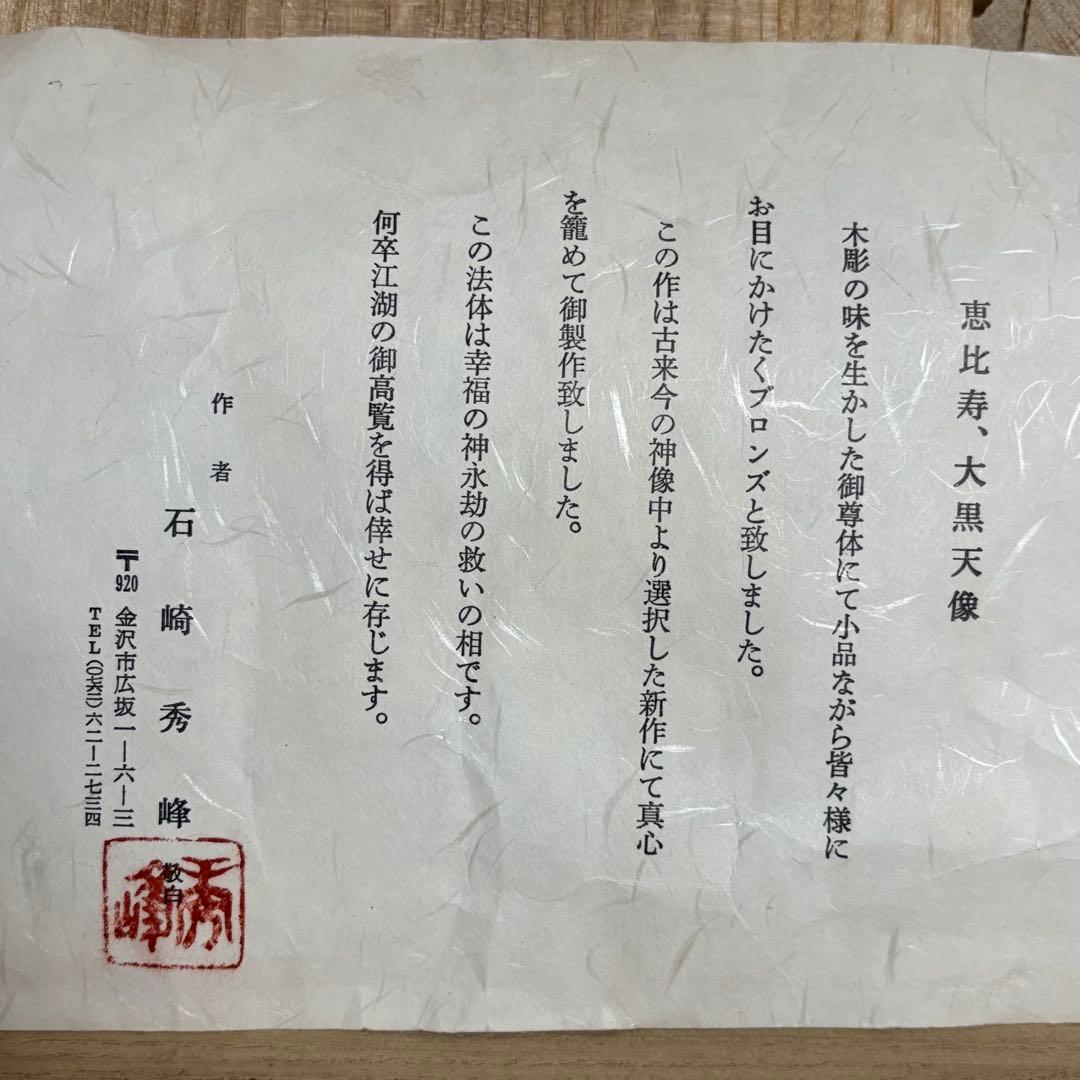 恵比寿、大黒天像
木彫の味を生かした御尊体にて小品ながら皆々様に
お目にかけたくブロンズと致しました。
この作は古来今の神像中より選択した新作にて真心
を籠めて御製作致しました。
この法体は幸福の神永劫の救いの相です。
何卒江湖の御高覧を得ば倖せに存じます。
作者
石崎秀峰
敬白
秀峰
〒920 金沢市広坂一―六―三
TEL(〇七六二)六二―二七三四